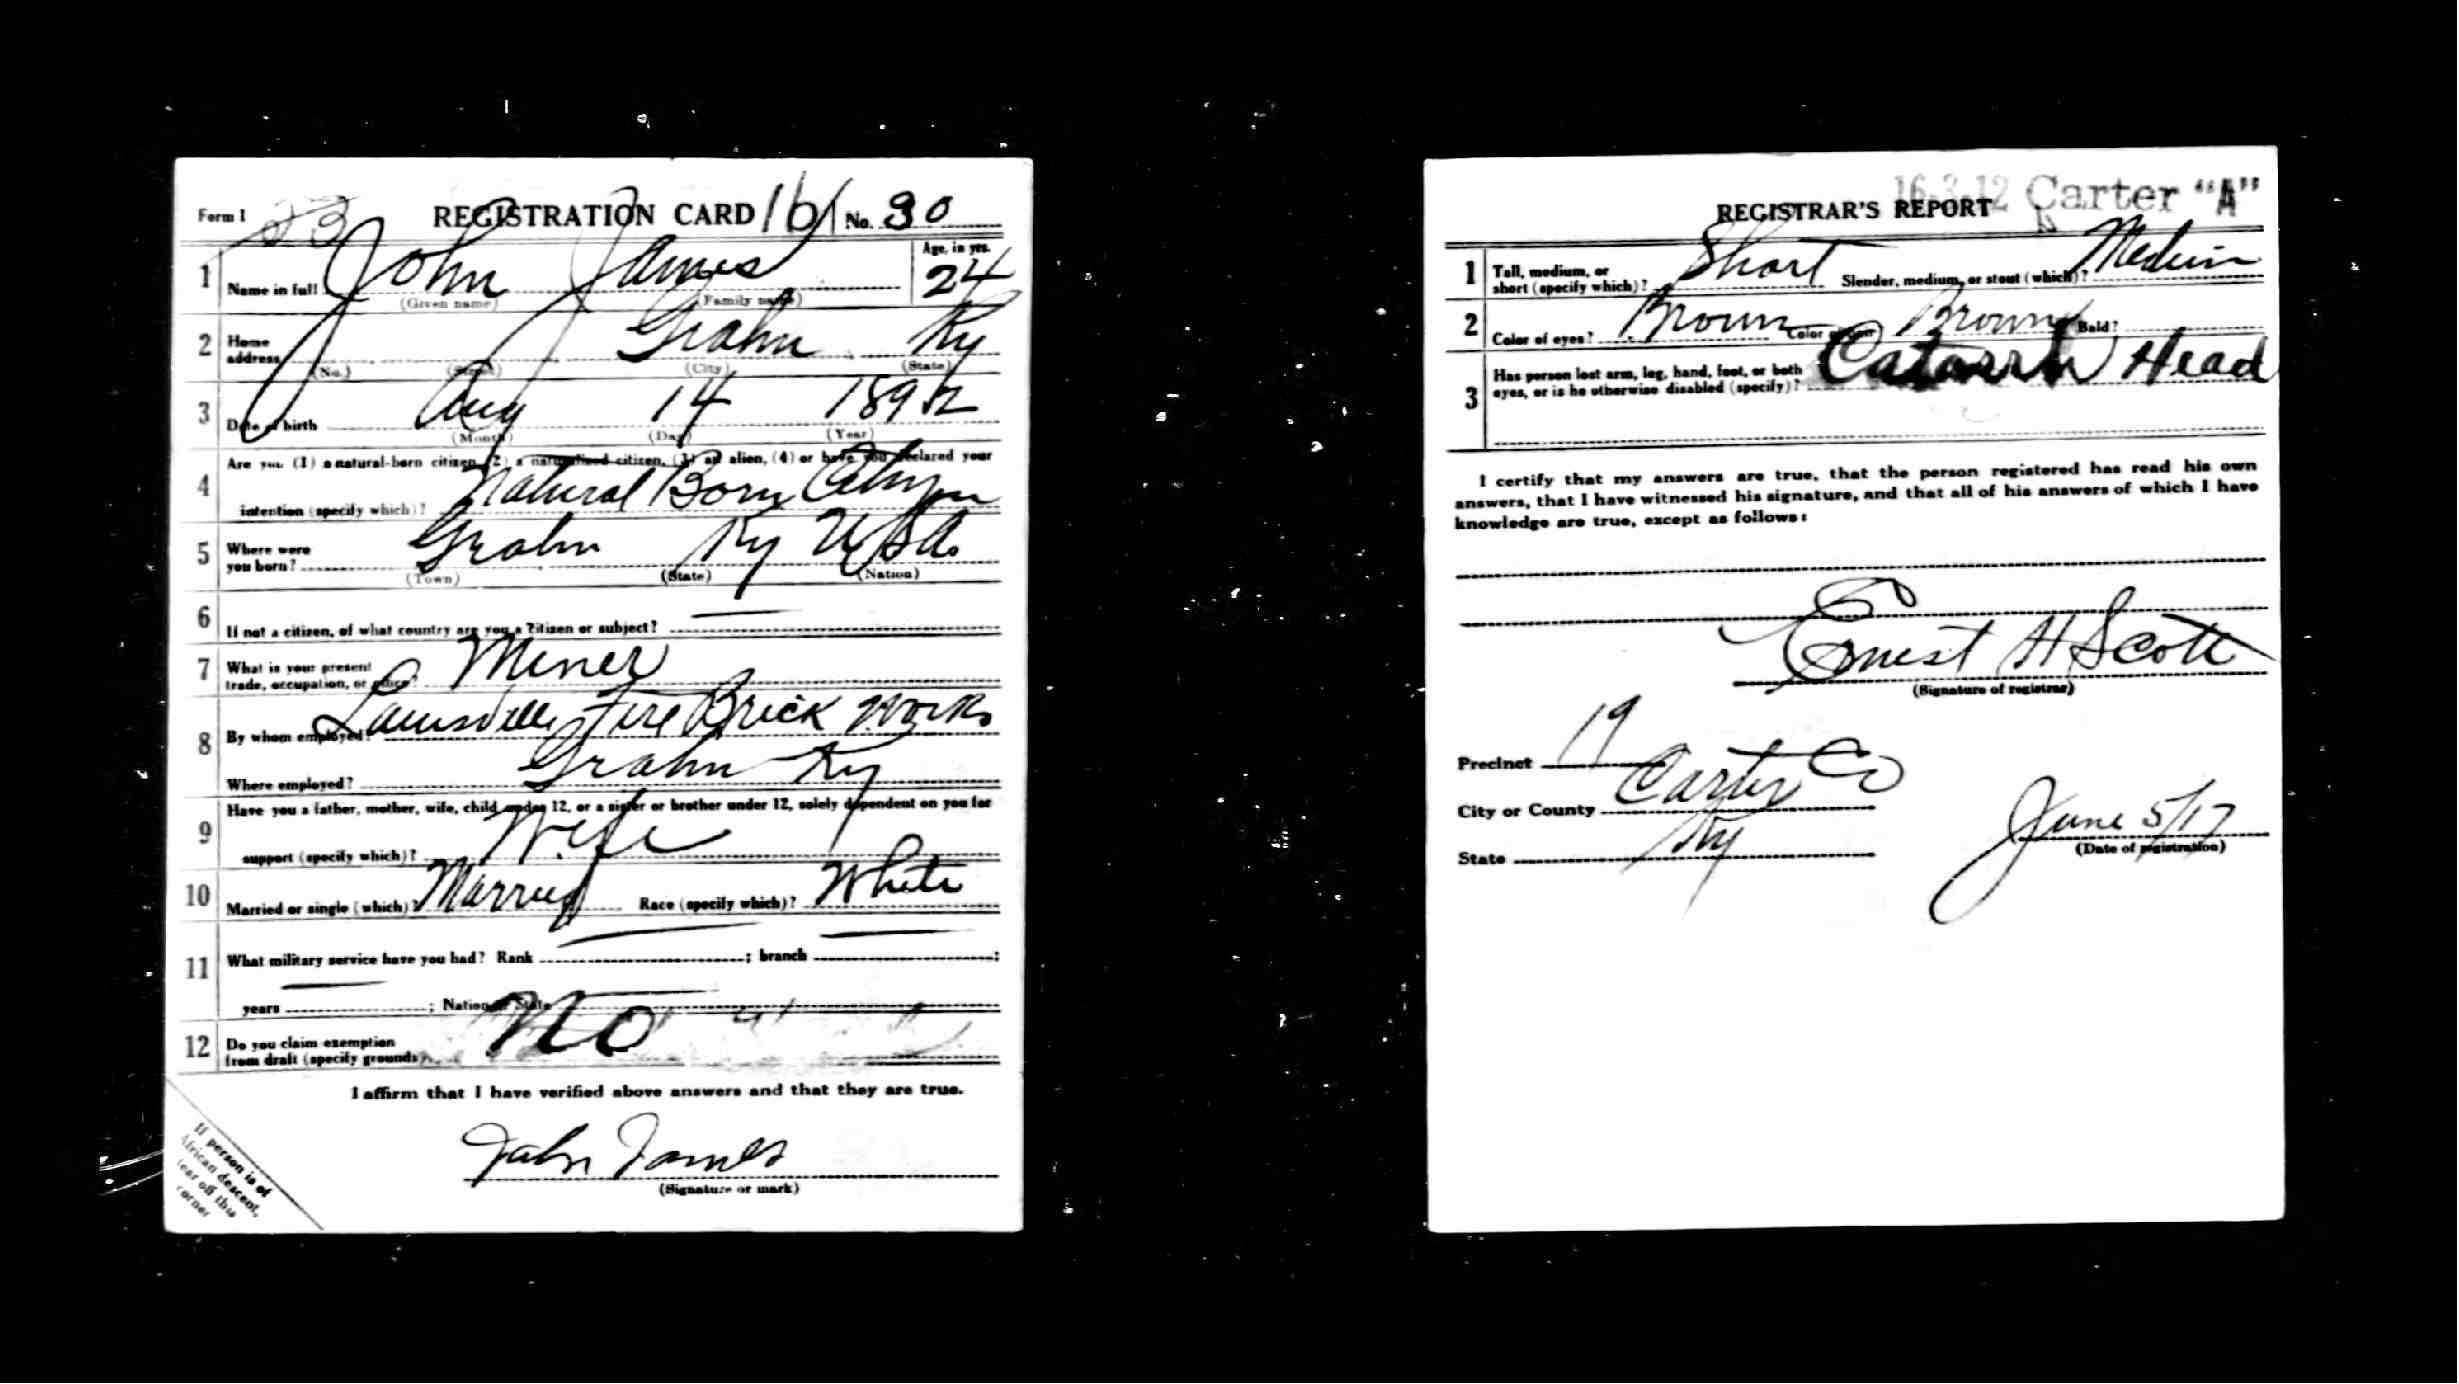 Form 1 23 REGISTRATION CARD 161 No. 30
1 Name in full John James Age, in yrs. 24
(Given name) (Family name)
2 Home address Grahn Ky
(No.) (Street) (City) (State)
3 Date of birth Aug 14 1892
(Month) (Day) (Year)
4 Are you (1) a natural-born citizen, (2) a naturalized citizen, (3) an alien, (4) or have you declared your
intention (specify which)? Natural Born Citizen
5 Where were you born? Grahn Ky USA.
(Town) (State) (Nation)
6 If not a citizen, of what country are you a citizen or subject? —
7 What is your present trade, occupation, or office? Miner
8 By whom employed? Louisville Fire Brick Works
Where employed? Grahn Ky
9 Have you a father, mother, wife, child under 12, or a sister or brother under 12, solely dependent on you for
support (specify which)? Wife
10 Married or single (which)? Married Race (specify which)? White
11 What military service have you had? Rank — ; branch — ;
years — ; Nation or State —
12 Do you claim exemption from draft (specify grounds)? No
I affirm that I have verified above answers and that they are true.
John James
(Signature or mark)
If person is of
African descent,
tear off this
corner
16-3-12 Carter "A"
REGISTRAR'S REPORT
1 Tall, medium, or short (specify which)? Short Slender, medium, or stout (which)? Medium
2 Color of eyes? Brown Color of hair? Brown Bald?
3 Has person lost arm, leg, hand, foot, or both
eyes, or is he otherwise disabled (specify)? Catarrh Head
I certify that my answers are true, that the person registered has read his own
answers, that I have witnessed his signature, and that all of his answers of which I have
knowledge are true, except as follows:
Ernest H Scott
(Signature of registrar)
Precinct 19
City or County Carter Co
State Ky
June 5/17
(Date of registration)